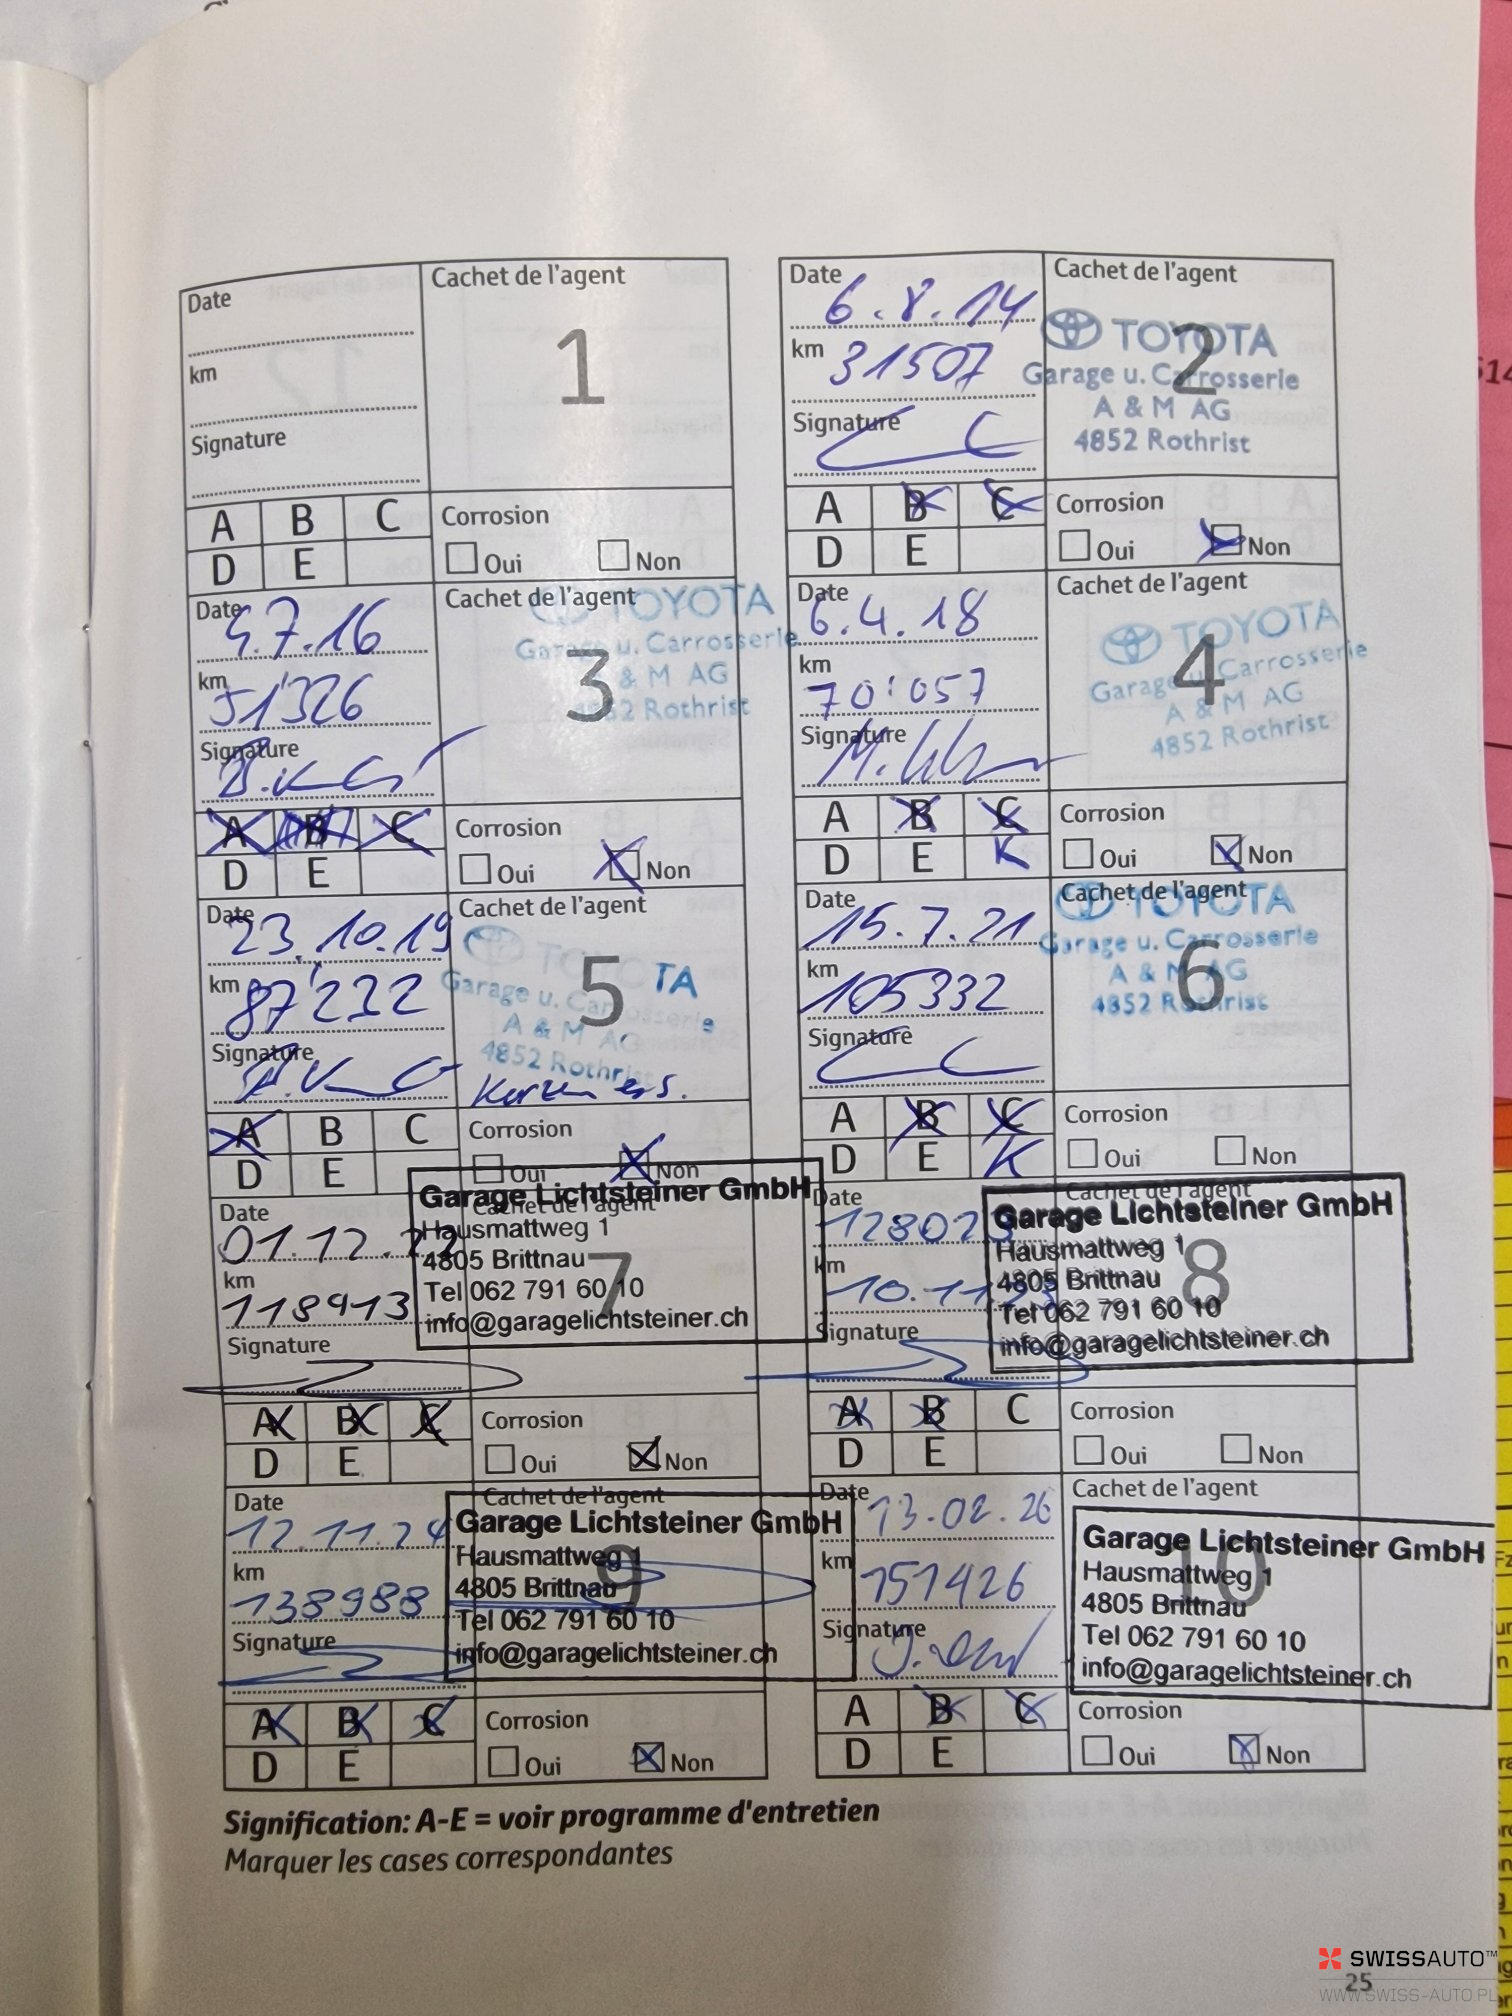 Date
km
Signature
Cachet de l'agent
1
A B C
D E
Corrosion
Oui Non
Date
6.8.14
km
31507
Signature
Cachet de l'agent
2
TOYOTA
Garage u. Carrosserie
A & M AG
4852 Rothrist
A B C
D E
Corrosion
Oui Non
Date
km
51'326
Signature
Cachet de l'agent
3
TOYOTA
Garage u. Carrosserie
& M AG
4852 Rothrist
A B C
D E
Corrosion
Oui Non
Date
6.4.18
km
70'057
Signature
Cachet de l'agent
4
TOYOTA
Garage u. Carrosserie
A & M AG
4852 Rothrist
A B C
D E K
Corrosion
Oui Non
Date
23.10.19
km
87'232
Signature
Cachet de l'agent
5
TOYOTA
Garage u. Carrosserie
A & M AG
4852 Rothrist
A B C
D E
Corrosion
Oui Non
Date
15.7.21
km
105332
Signature
Cachet de l'agent
6
TOYOTA
Garage u. Carrosserie
A & M AG
4852 Rothrist
A B C
D E K
Corrosion
Oui Non
Date
01.12.22
km
118913
Signature
Cachet de l'agent
7
Garage Lichtsteiner GmbH
Hausmattweg 1
4805 Brittnau
Tel 062 791 60 10
info@garagelichtsteiner.ch
A B C
D E
Corrosion
Oui Non
Date
128023
km
10.11.
Signature
Cachet de l'agent
8
Garage Lichtsteiner GmbH
Hausmattweg 1
4805 Brittnau
Tel 062 791 60 10
info@garagelichtsteiner.ch
A B C
D E
Corrosion
Oui Non
Date
12.11.24
km
138988
Signature
Cachet de l'agent
9
Garage Lichtsteiner GmbH
Hausmattweg 1
4805 Brittnau
Tel 062 791 60 10
info@garagelichtsteiner.ch
A B C
D E
Corrosion
Oui Non
Date
13.02.26
km
151426
Signature
Cachet de l'agent
10
Garage Lichtsteiner GmbH
Hausmattweg 1
4805 Brittnau
Tel 062 791 60 10
info@garagelichtsteiner.ch
A B C
D E
Corrosion
Oui Non
Signification: A-E = voir programme d'entretien
Marquer les cases correspondantes
25
SWISSAUTO™
WWW.SWISS-AUTO.PL